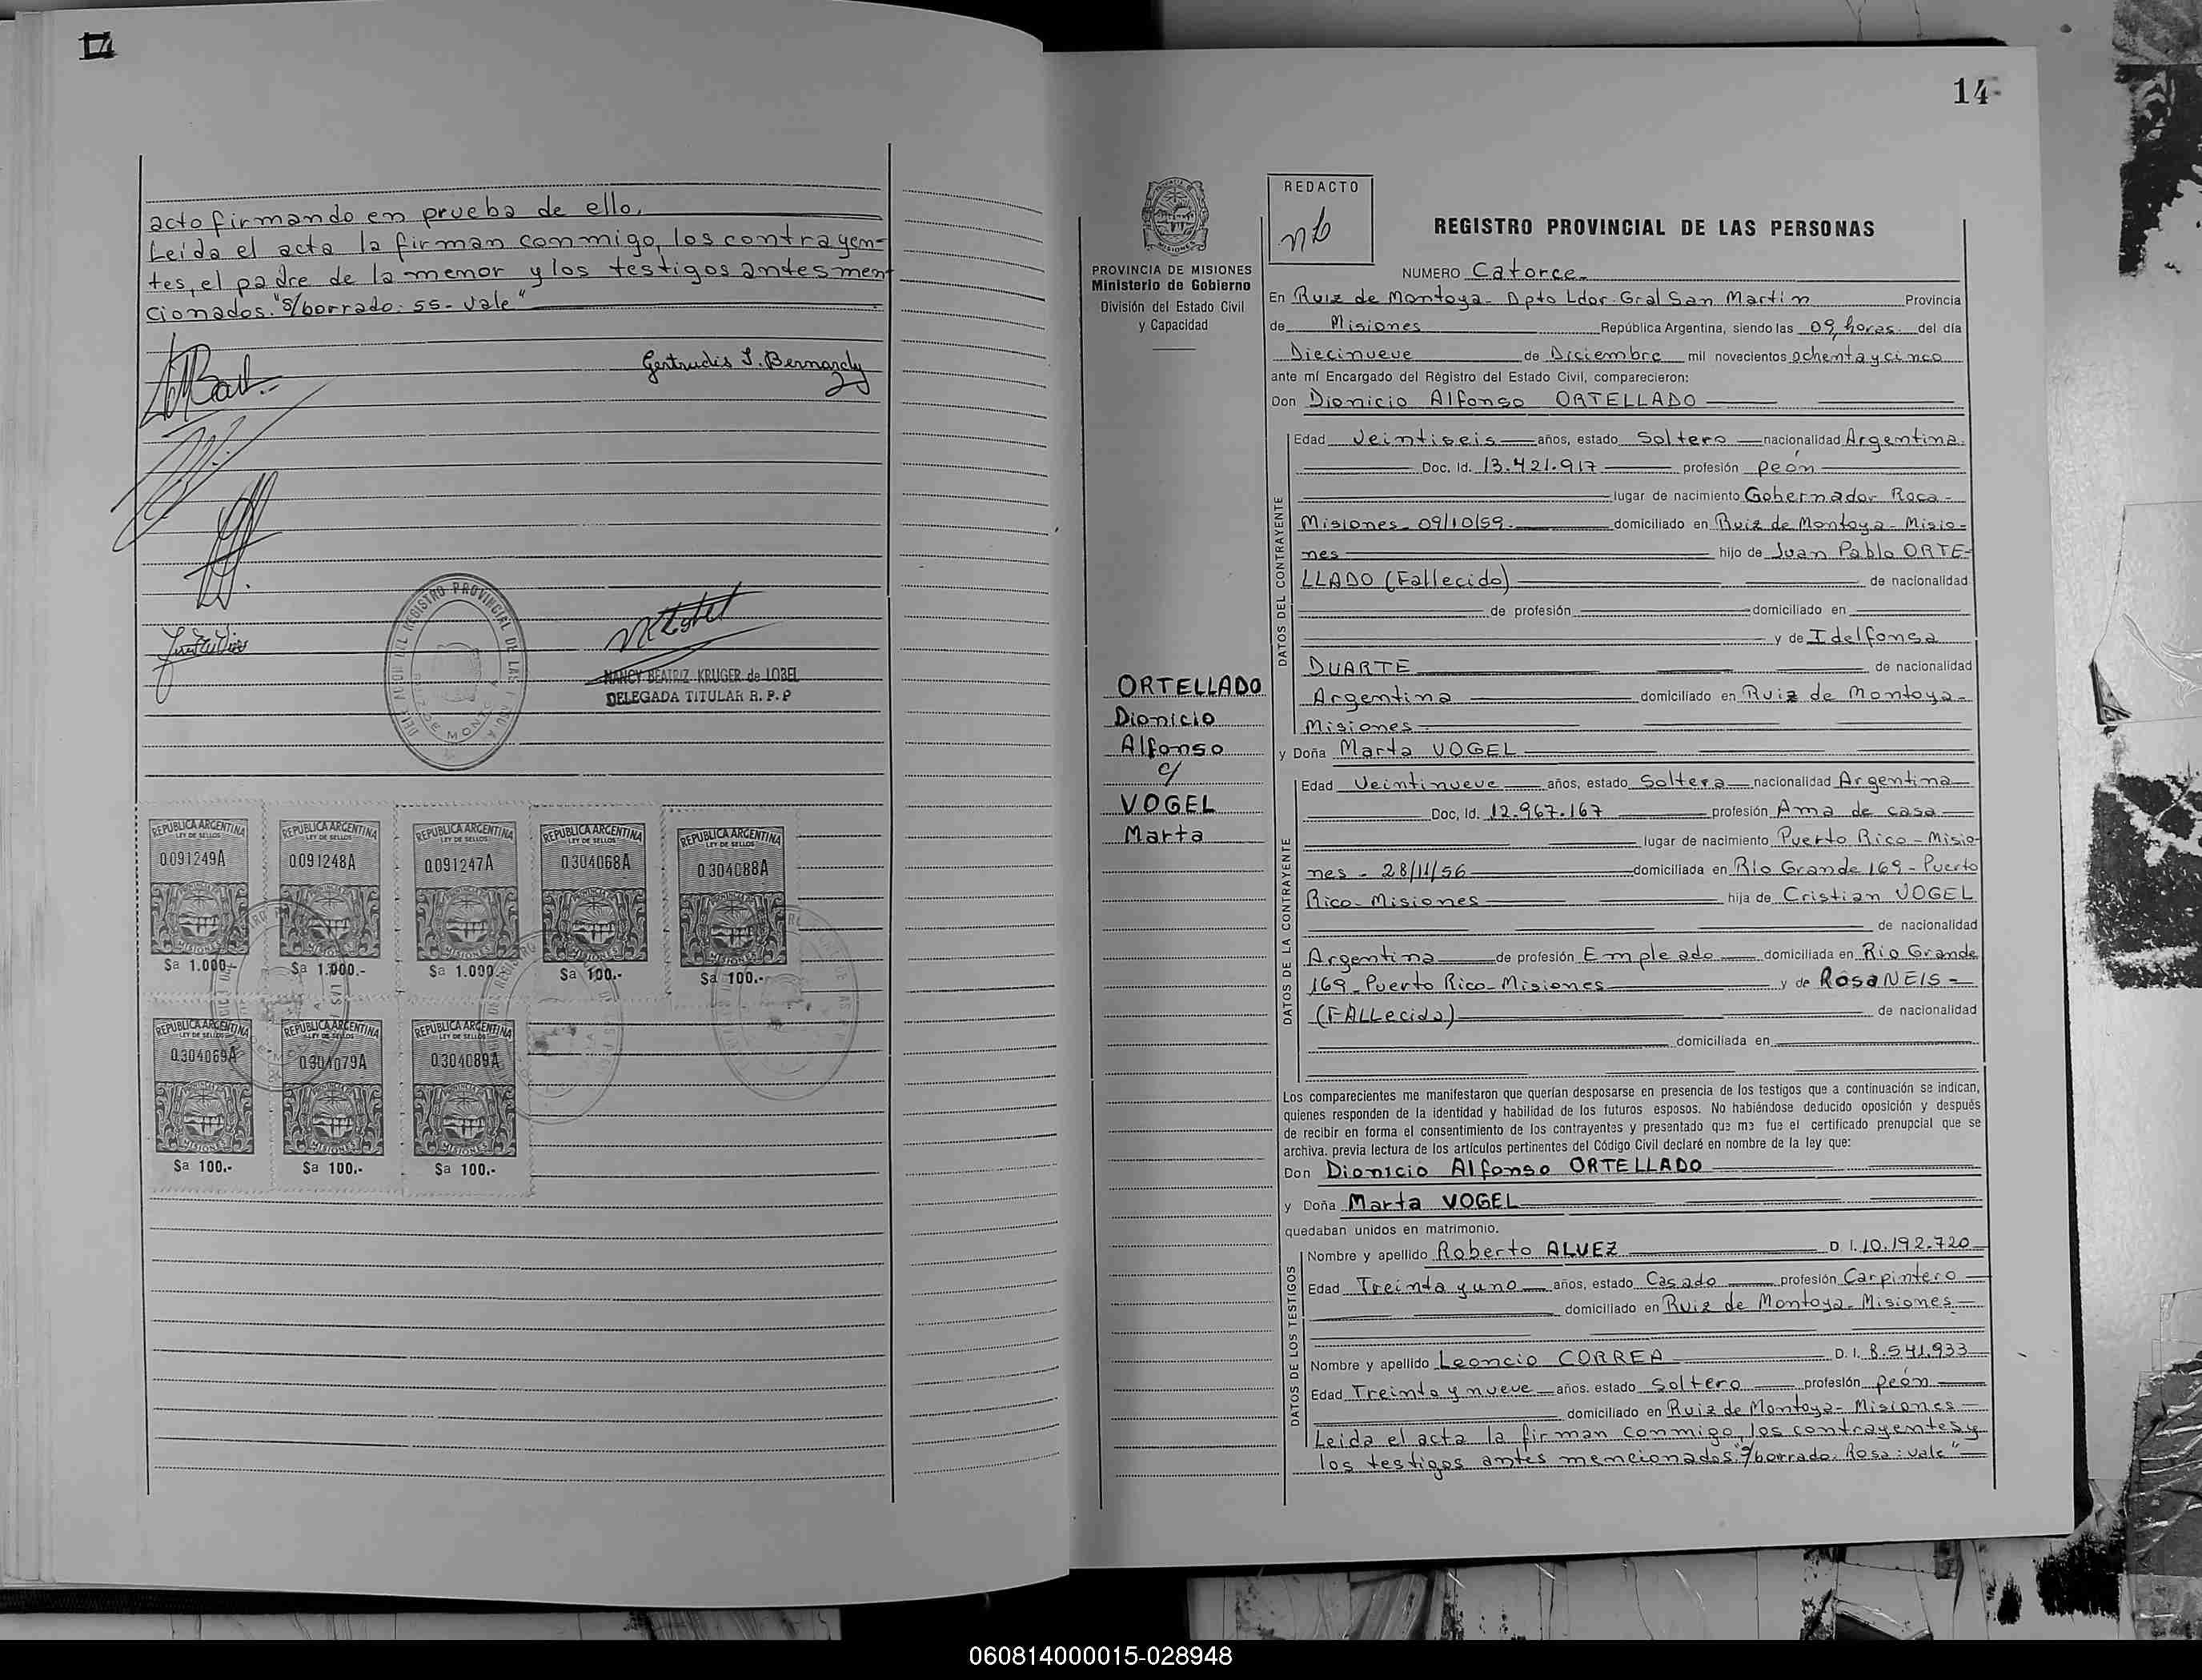 acto firmando en prueba de ello.
Leida el acta la firman conmigo, los contrayen-
tes, el padre de la menor y los testigos antes men
cionados. "s/borrado: 55- vale"
Gertrudis S. Bernardy
NANCY BEATRIZ KRUGER de LOBEL
DELEGADA TITULAR R. P. P
REPUBLICA ARGENTINA
LEY DE SELLOS
0091249A
MISIONES
$a 1.000.-
REPUBLICA ARGENTINA
LEY DE SELLOS
0091248A
MISIONES
$a 1.000.-
REPUBLICA ARGENTINA
LEY DE SELLOS
0091247A
MISIONES
$a 1.000.-
REPUBLICA ARGENTINA
LEY DE SELLOS
0304068A
MISIONES
$a 100.-
REPUBLICA ARGENTINA
LEY DE SELLOS
0304088A
MISIONES
$a 100.-
REPUBLICA ARGENTINA
LEY DE SELLOS
0304069A
MISIONES
$a 100.-
REPUBLICA ARGENTINA
LEY DE SELLOS
0304079A
MISIONES
$a 100.-
REPUBLICA ARGENTINA
LEY DE SELLOS
0304089A
MISIONES
$a 100.-
14
PROVINCIA DE MISIONES
Ministerio de Gobierno
División del Estado Civil
y Capacidad
ORTELLADO
Dionicio
Alfonso
c/
VOGEL
Marta
REDACTO
REGISTRO PROVINCIAL DE LAS PERSONAS
NUMERO Catorce
En Ruiz de Montoya- Dpto Ldor. Gral San Martín Provincia
de Misiones República Argentina, siendo las 09, horas del día
Diecinueve de Diciembre mil novecientos ochenta y cinco
ante mí Encargado del Registro del Estado Civil, comparecieron:
Don Dionicio Alfonso ORTELLADO
DATOS DEL CONTRAYENTE
Edad Veintiseis años, estado Soltero nacionalidad Argentina
Doc. Id. 13.421.917 profesión peón
lugar de nacimiento Gobernador Roca-
Misiones- 09/10/59. domiciliado en Ruiz de Montoya- Misio-
nes hijo de Juan Pablo ORTE-
LLADO (Fallecido) de nacionalidad
de profesión domiciliado en
y de Idelfonsa
DUARTE de nacionalidad
Argentina domiciliado en Ruiz de Montoya-
Misiones
y Doña Marta VOGEL
DATOS DE LA CONTRAYENTE
Edad Veintinueve años, estado Soltera nacionalidad Argentina
Doc. Id. 12.967.167 profesión Ama de casa
lugar de nacimiento Puerto Rico - Misio-
nes - 28/11/56 domiciliada en Río Grande 169 - Puerto
Rico- Misiones hija de Cristian VOGEL
de nacionalidad
Argentina de profesión Empleado domiciliada en Río Grande
169- Puerto Rico- Misiones y de Rosa NEIS-
(FALLecida) de nacionalidad
domiciliada en
Los comparecientes me manifestaron que querían desposarse en presencia de los testigos que a continuación se indican,
quienes responden de la identidad y habilidad de los futuros esposos. No habiéndose deducido oposición y después
de recibir en forma el consentimiento de los contrayentes y presentado que me fue el certificado prenupcial que se
archiva. previa lectura de los artículos pertinentes del Código Civil declaré en nombre de la ley que:
Don Dionicio Alfonso ORTELLADO
y Doña Marta VOGEL
quedaban unidos en matrimonio.
DATOS DE LOS TESTIGOS
Nombre y apellido Roberto ALVEZ D. I. 10.192.720
Edad Treinta y uno años, estado Casado profesión Carpintero
domiciliado en Ruiz de Montoya- Misiones
Nombre y apellido Leoncio CORREA D. I. 8.541.933
Edad Treinta y nueve años. estado Soltero profesión peón
domiciliado en Ruiz de Montoya- Misiones
Leida el acta la firman conmigo, los contrayentes y
los testigos antes mencionados "s/borrado. Rosa: vale"
060814000015-028948